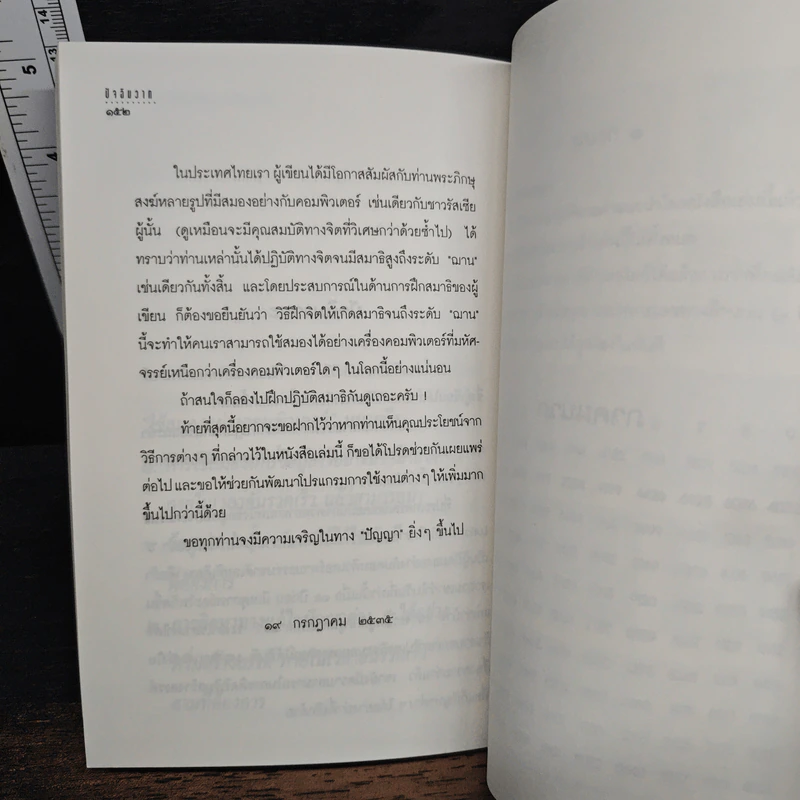 5
14
13
ปัจฉิมวาท
๑๕๒
ในประเทศไทยเรา ผู้เขียนได้มีโอกาสสัมผัสกับท่านพระภิกษุ
สงฆ์หลายรูปที่มีสมองอย่างกับคอมพิวเตอร์ เช่นเดียวกับชาวรัสเซีย
ผู้นั้น (ดูเหมือนจะมีคุณสมบัติทางจิตที่วิเศษกว่าด้วยซ้ำไป) ได้
ทราบว่าท่านเหล่านั้นได้ปฏิบัติทางจิตจนมีสมาธิสูงถึงระดับ "ฌาน"
เช่นเดียวกันทั้งสิ้น และโดยประสบการณ์ในด้านการฝึกสมาธิของผู้
เขียน ก็ต้องขอยืนยันว่า วิธีฝึกจิตให้เกิดสมาธิจนถึงระดับ "ฌาน"
นี้จะทำให้คนเราสามารถใช้สมองได้อย่างเครื่องคอมพิวเตอร์ที่มหัศ-
จรรย์เหนือกว่าเครื่องคอมพิวเตอร์ใด ๆ ในโลกนี้อย่างแน่นอน
ถ้าสนใจก็ลองไปฝึกปฏิบัติสมาธิกันดูเถอะครับ !
ท้ายที่สุดนี้อยากจะขอฝากไว้ว่าหากท่านเห็นคุณประโยชน์จาก
วิธีการต่าง ๆ ที่กล่าวไว้ในหนังสือเล่มนี้ ก็ขอได้โปรดช่วยกันเผยแพร่
ต่อไป และขอให้ช่วยกันพัฒนาโปรแกรมการใช้งานต่าง ๆ ให้เพิ่มมาก
ขึ้นไปกว่านี้ด้วย
ขอทุกท่านจงมีความเจริญในทาง "ปัญญา" ยิ่ง ๆ ขึ้นไป
๑๙ กรกฎาคม ๒๕๓๕